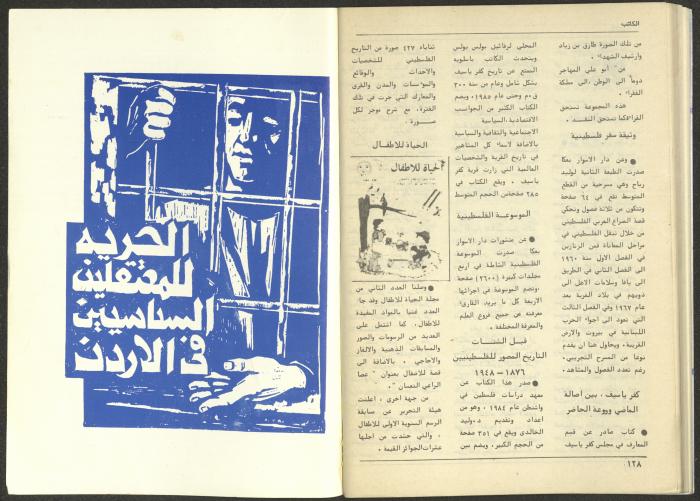 الكاتب
من تلك الصورة طارق بن زياد
وارشيف الشهدا" .
من" أبو علي المهاجر
دوما الى الوطن ،الى مملكة
الفقرا"
هذه المجموعة تستحق
القراءةكما تستحق النقـد .
وثيقة سفر فلسطينية
● وعن دار الاسوار بعكا
صدرت الطبعة الثانية لوليد
رباح وهي مسرحية من القطع
المتوسط تقع في ٦٤ صفحة
وتتكون من ثلاثة فصول وتحكي
قصة الصراع العربي الفلسطيني
من خلال تنقل الفلسطيني في
مراحل المعاناة فمن الزنازين
في الفصل الاول سنة ١٩٦٠
الى الفصل الثاني في الطريق
الى يافا وسلامات الاهل الى
ذويهم في بلاد الغربة بعد
عام ١٩٦٧ وفي الفصل الثالث
التي تعود الى اجواء الحرب
اللبنانية في بيروت والارض
القريبة، ويحاول هنا ان يقدم
نوعا من المسرح التجريبي .
رغم تعدد الفصول والمشاهد .
كفر ياسيف ، بين أصالة
الماضي وروعة الحاضر
● كتاب صادر عن قسم
المعارف في مجلس كفر ياسيف
المحلي لرفائيل بولس بولس
ويتحدث الكاتب باسلوبه
الممتع عن تاريخ كفر ياسيف
بشكل شامل وعام من سنة ٣٠٠
ق٠م وحتى عام ١٩٨٥، ويضم
الكتاب الكثير من الجوانب
الاقتصادية ،السياسية
الاجتماعية والثقافية والسياسية
بالاضافة لاسماء كل المشاهير
في تاريخ القرية والشخصيات
العالمية التي زارت قرية كفر
ياسيف . ويقع الكتاب في
٢٨٥ صفحةمن الحجم المتوسط
الموسوعة الفلسطينية
● عن منشورات دار الاسوار
بعكا صدرت الموسوعة
الفلسطينية الشاملة في اربع
مجلدات كبيرة (٢٦٠٠) صفحة
،وتضم الموسوعة في اجزائها
الاربعة كل ما يريد القارئ
معرفته عن جميع فروع العلم
والمعرفة المختلفة .
قبل الشتات
التاريخ المصور للفلسطينيين
١٨٧٦ – ١٩٤٨
● صدر هذا الكتاب عن
معهد دراسات فلسطين في
واشنطن عام ١٩٨٤ ، وهو من
اعداد وتقديم د.وليد
الخالدي ويقع في ٣٥١ صفحة
من الحجم الكبير، ويضم بين
ثناياه ٤٢٧ صورة عن التاريخ
الفلسطيني للشخصيات
والاحداث والوقائع
والمؤسسات والمدن والقرى
والمعارك التي جرت في تلك
الفترة، مع شرح موجز لكل
صورة .
الحياة للاطفال
الحياة للاطفال
● وصلنا العدد الثاني من
مجلة الحياة للاطفال وقد جاء
العدد غنيا بالمواد المفيدة
للاطفال، كما اشتمل على
العديد من الرسومات والصور
والمسابقات الذهنية والالغاز
والاحاجي ، بالاضافة الى
قصة للاطفال بعنوان " عصا
الراعي النعسان " .
من جهة اخرى ، اعلنت
هيئة التحرير عن مسابقة
الرسم السنوية الاولى للاطفال
، والتي جندت من اجلها
عشرات الجوائز القيمة .
١٢٨
الحريه
للمعتقلين
السياسيين
في الاردن